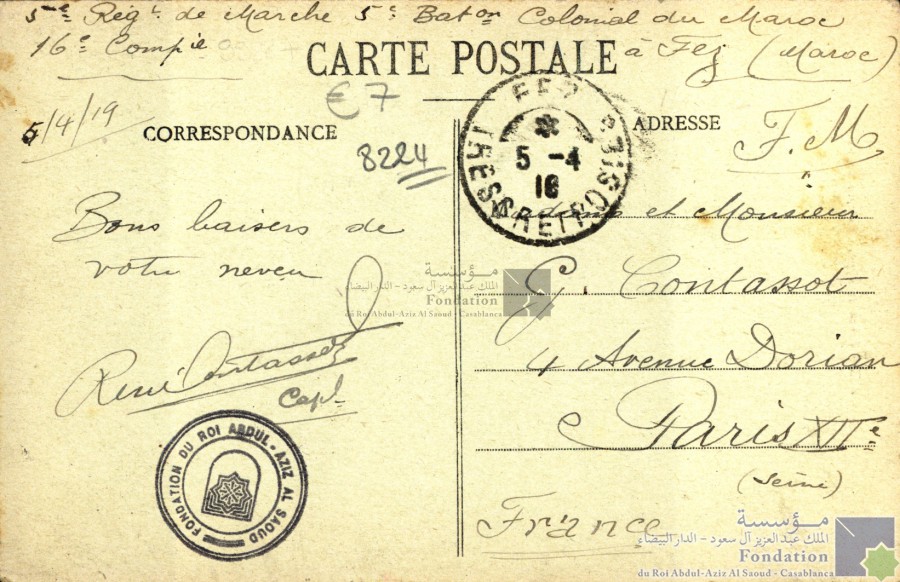 5me Régt. de Marche 5e Baton Colonial du Maroc
16e Compie à Fez (Maroc)
CARTE POSTALE
€7
5/4/19
CORRESPONDANCE
ADRESSE
8224
F.M
FEZ
5 -4
TRESOR ET POSTES
Bons baisers de
votre neveu
René Contassot
Capl
Madame et Monsieur
G. Contassot
4 Avenue Dorian
Paris XIIe
(Seine)
France
FONDATION DU ROI ABDUL-AZIZ AL SAOUD
مؤسسة
الملك عبدالعزيز آل سعود - الدار البيضاء
Fondation
du Roi Abdul-Aziz Al Saoud - Casablanca
مؤسسة
الملك عبدالعزيز آل سعود - الدار البيضاء
Fondation
du Roi Abdul-Aziz Al Saoud - Casablanca